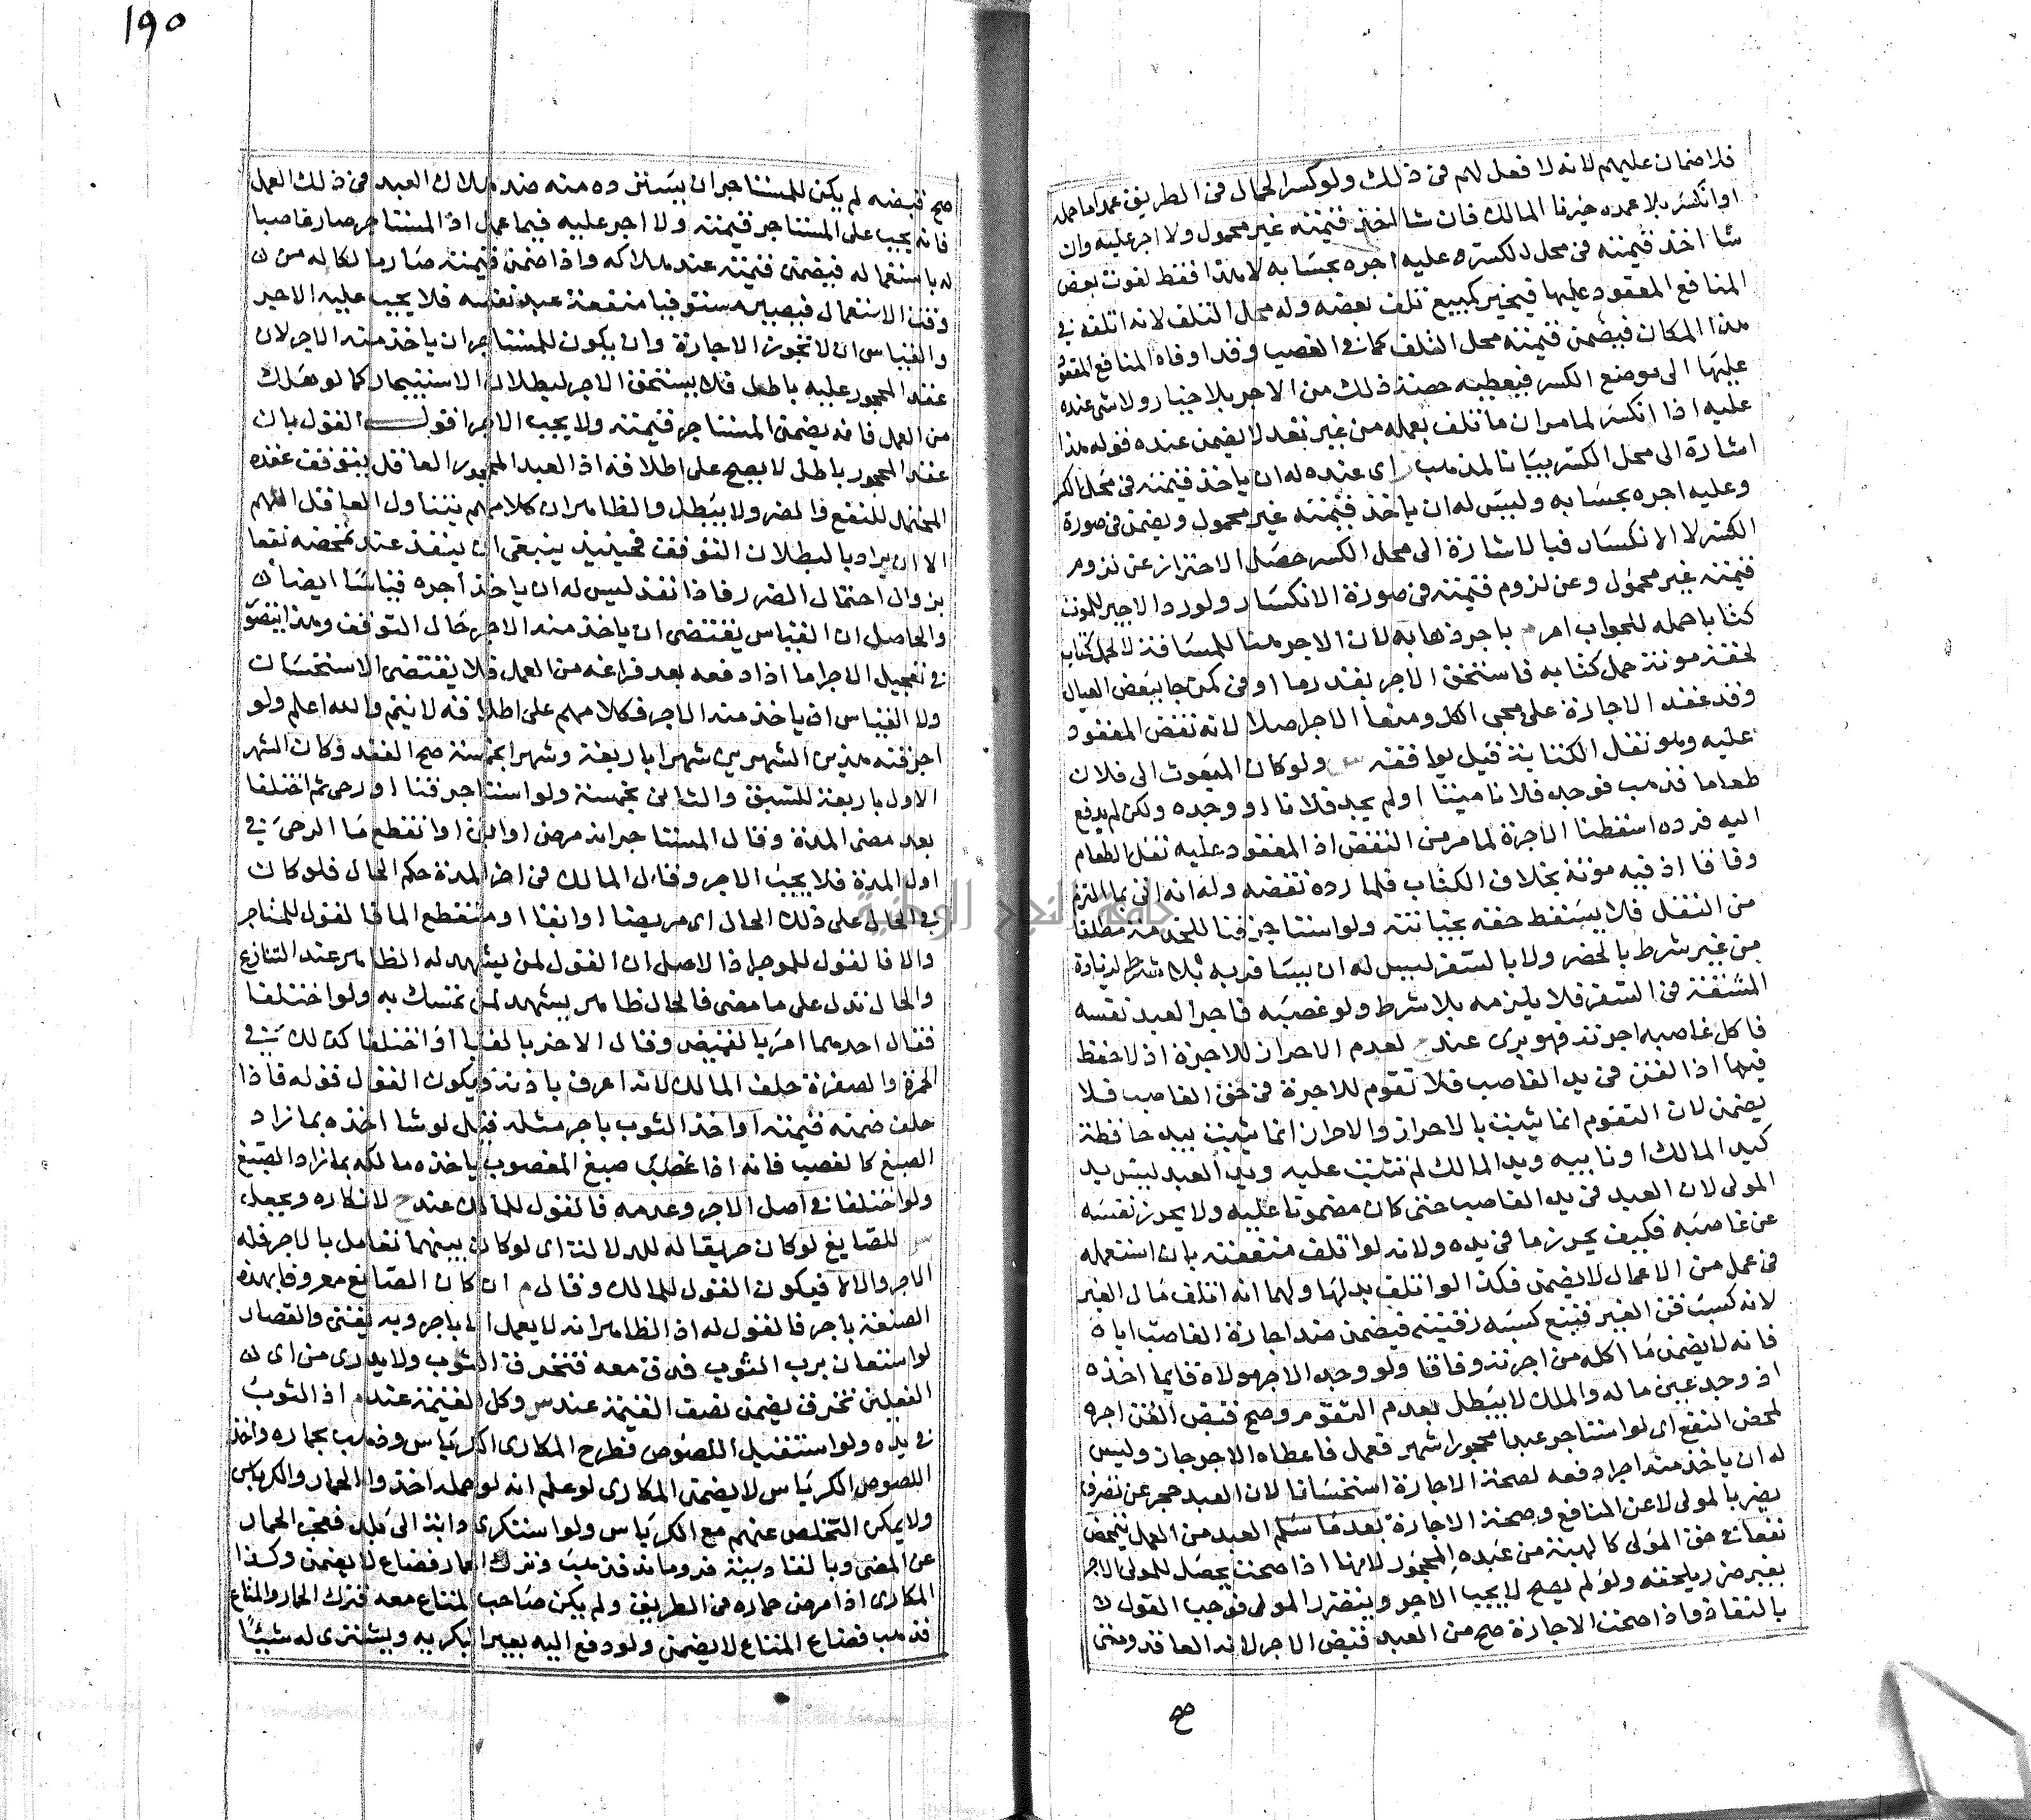 فلا ضمان عليهم لانه لا فعل لهم فى ذلك ولو كسر الحمال فى الطريق عمدا ما حمله
او انكسر بلا عمده خيرنا المالك فان شا اخذ قيمته غير محمول ولا اجر عليه وان
شا اخذ قيمته فى محل لكسره وعليه اجره بحسابه لا هذا فقط لفوت بعض
المنافع المعقود عليها فيخير كمبيع تلف بعضه وله محل التلف لانه اتلفه فى
هذا المكان فيضمن قيمته محل التلف كما فى الغصب وقد اوفاه المنافع المعقود
عليها الى موضع الكسر فيعطيه حصة ذلك من الاجر بلا خيار ولا شى عنده
عليه اذا انكسر لما مر ان ما تلف بعمله من غير تعد لا يضمن عنده فقوله هذا
اشارة الى محل الكسر بيانا لمذهب اى عنده له ان ياخذ قيمته فى محل الكسر
وعليه اجره بحسابه وليس له ان ياخذ قيمته غير محمول ويضمن فى صورة
الكسر لا الانكسار فبالاشارة الى محل الكسر حصل الاحتراز عن لزوم
قيمته غير محمول وعن لزوم قيمته فى صورة الانكسار ولو رد الاجير للموت
كتابا حمله للجواب امر باجر ذهابه لان الاجر هنا للمسافة لا لحمل كتابه
لخفة مونة حمل كتابه فاستحق الاجر بقدرها او فى كمن جا ببعض العيال
وقد عقد الاجارة على مجى الكل ومنعا الاجر اصلا لانه نقض المعقود
عليه وهو نقل الكتابة قيل يوافقه س ولو كان المبعوث الى فلان
طعاما فذهب فوجد فلانا ميتا او لم يجد فلانا او وجده ولكن لم يدفع
اليه فرده اسقطنا الاجرة لما مر من النقض اذ المعقود عليه نقل الطعام
وفاقا اذ فيه مونة بخلاف الكتاب فلما رده نقضه وله انه اتى بما التزم
من النقل فلا يسقط حقه بخيانته ولو استاجر قنا للخدمة مطلقا
من غير شرط بالحضر ولا بالسفر ليس له ان يسافر به بلا شرط لزيادة
المشقة فى السفر فلا يلزمه بلا شرط ولو غصبه فاجر العبد نفسه
فاكل غاصبه اجرته فهو برى عند ح لعدم الاحراز للاجرة اذ لا حفظ
فيها اذ القن فى يد الغاصب فلا تقوم للاجرة فى حق الغاصب فلا
يضمن لان التقوم انما يثبت بالاحراز والاحراز انما يثبت بيد حافظة
كيد المالك او نايبه ويد المالك لم تثبت عليه ويد العبد ليس يد
المولى لان العبد فى يد الغاصب حتى كان مضمونا عليه ولا يحرز نفسه
عن غاصبه فكيف يحرز ما فى يده ولانه لو اتلف منفعته بان استعمله
فى عمل من الاعمال لا يضمن فكذا لو اتلف بدلها ولهما انه اتلف مال الغير
لانه كسب قن الغير فتبع كسبه رقبته فيضمن ضد اجارة الغاصب اياه
فانه لا يضمن ما اكله من اجرته وفاقا ولو وجد الاجر مولاه قايما اخذه
اذ وجد عين ماله والملك لا يبطل بعدم التقوم وصح قبض القن اجره
لمحض النفع اى لو استاجر عبدا محجورا شهر فعمل فاعطاه الاجر جاز وليس
له ان ياخذ منه اجرا دفعه لصحة الاجارة استحسانا لان العبد حجر عن تصرف
يضر بالمولى لا عن المنافع وصحة الاجارة بعدما سلم العبد من العمل تتمحض
نفعا فى حق المولى كالهبة من عبده المحجور لانها اذا صحت يحصل للمولى الاجر
بغير ضرر يلحقه ولو لم يصح لا يجب الاجر ويتضرر المولى فوجب القول
بالنفاذ واذا صحت الاجارة صح من العبد قبض الاجر لانه العاقد ومتى
صح
١٩٥
صح قبضه لم يكن للمستاجر ان يسترده منه ضد هلاك العبد فى ذلك العمل
فانه يجب على المستاجر قيمته ولا اجر عليه فيما عمل اذ المستاجر صار غاصبا
له باستعماله فيضمن قيمته عند هلاكه واذا ضمن قيمته صار مالكا له من
وقت الاستعمال فيصير مستوفيا منفعة عبد نفسه فلا يجب عليه الاجر
والقياس ان لا تجوز الاجارة وان يكون للمستاجر ان ياخذ منه الاجر لان
عقد المحجور عليه باطل فلا يستحق الاجر لبطلان الاستيجار كما لو هلك
من العمل فانه يضمن المستاجر قيمته ولا يجب الاجر اقول القول بان
عقد المحجور باطل لا يصح على اطلاقه اذ العبد المحجور العاقل يتوقف عقده
المحتمل للنفع والضر ولا يبطل والظاهر ان كلامهم يتناول العاقل اللهم
الا ان يراد بالبطلان التوقف فحينيذ ينبغى ان ينفذ عند تمحضه نفعا
بزوال احتمال الضرر فاذا نفذ ليس له ان ياخذ اجره قياسا ايضا
والحاصل ان القياس يقتضى ان ياخذ منه الاجر حال التوقف وهذا يتصور
فى تعجيل الاجر اما اذا دفعه بعد فراغه من العمل فلا يقتضى الاستحسان
ولا القياس ان ياخذ منه الاجر فكلامهم على اطلاقه لا يتم والله اعلم ولو
اجر قنه هذين الشهرين شهرا باربعة وشهرا بخمسة صح العقد وكان الشهر
الاول باربعة للسبق والثانى بخمسة ولو استاجر قنا او رحى ثم اختلفا
بعد مضى المدة وقال المستاجر انه مرض او ابق او انقطع ما الرحى فى
اول المدة فلا يجب الاجر وقال المالك فى اخر المدة حكم الحال فلو كان
فى الحال على ذلك الحال اى مريضا او ابقا او منقطع الما فالقول للمستاجر
والا فالقول للموجر اذ الاصل ان القول لمن يشهد له الظاهر عند التنازع
والحال تدل على ما مضى فالحال ظاهر يشهد لمن تمسك به ولو اختلفا
فقال احدهما امر بالقميص وقال الاخر بالقبا او اختلفا كذلك فى
الحمرة والصفرة حلف المالك لانه اعرف باذنه ويكون القول قوله فاذا
حلف ضمنه قيمته او اخذ الثوب باجر مثله قيل لو شا اخذه بما زاد
الصبغ كالغصب فانه اذا غصب صبغ المغصوب ياخذه مالكه بما زاد الصبغ
ولو اختلفا فى اصل الاجر وعدمه فالقول للمالك عند ح لانكاره ويجعله
س للصايغ لو كان حريفا له للدلالة اى لو كان بينهما تعامل بالاجر فله
الاجر والا لا فيكون القول للمالك وقال م ان كان الصانع معروفا بهذه
الصنعة باجر فالقول له اذ الظاهر انه لا يعمل الا باجر وبه يفتى والقصار
لو استعان برب الثوب فدق معه فتخرق الثوب ولا يدرى من اى
الفعلين تخرق يضمن نصف القيمة عند س وكل القيمة عند م اذ الثوب
فى يده ولو استقبل اللصوص فطرح المكارى الكرباس وذهب بحماره واخذ
اللصوص الكرباس لا يضمن المكارى لو علم انه لو حمله اخذوا الحمار والكرباس
ولا يمكن التخلص عنهم مع الكرباس ولو استكرى دابة الى بلد فعجز الحمار
عن المضى وترك الحمار فضاع لا يضمن وكذا
المكارى اذا مرض حماره فى الطريق ولم يكن صاحب المتاع معه فترك الحمار والمتاع
فذهب فضاع المتاع لا يضمن ولو دفع اليه بعيرا ليكريه ويشترى له شيئا
جامعة النجاح الوطنية